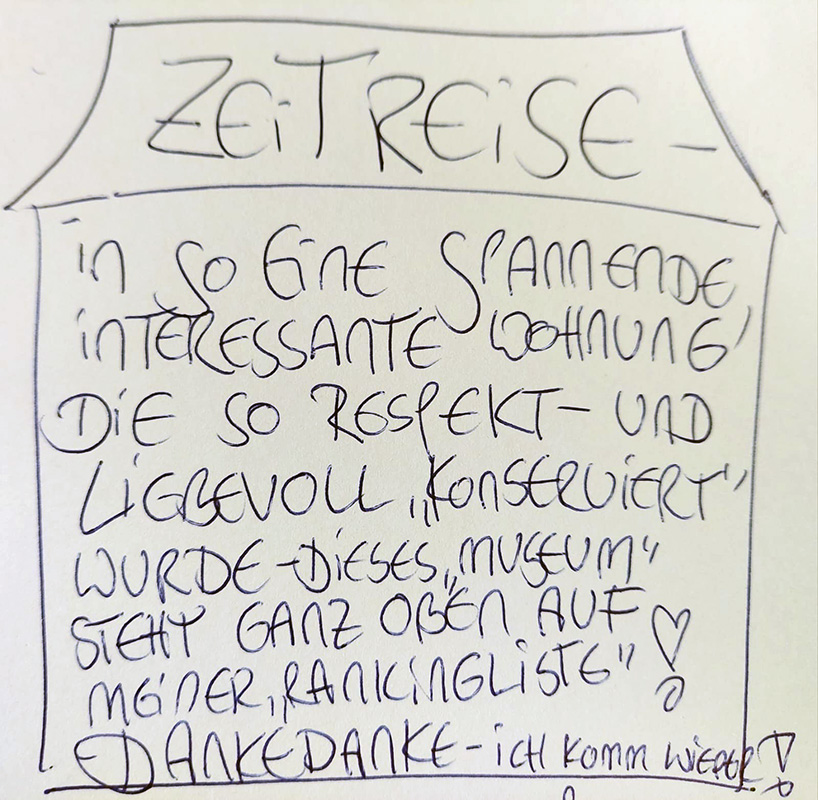 ZEITREISE -
in SO EinE SPANNENDE
inTERESSANTE WOHNUNG,
DiE SO RESPEKT- UND
LiEBEVOLL „KONSERViERT"
WURDE - DiESES „MUSEUM"
STEHT GANZ OBEN AUF
MEiNER „RANKiNGLiSTE"!
DANKEDANKE - iCH KOMM WiEDER!